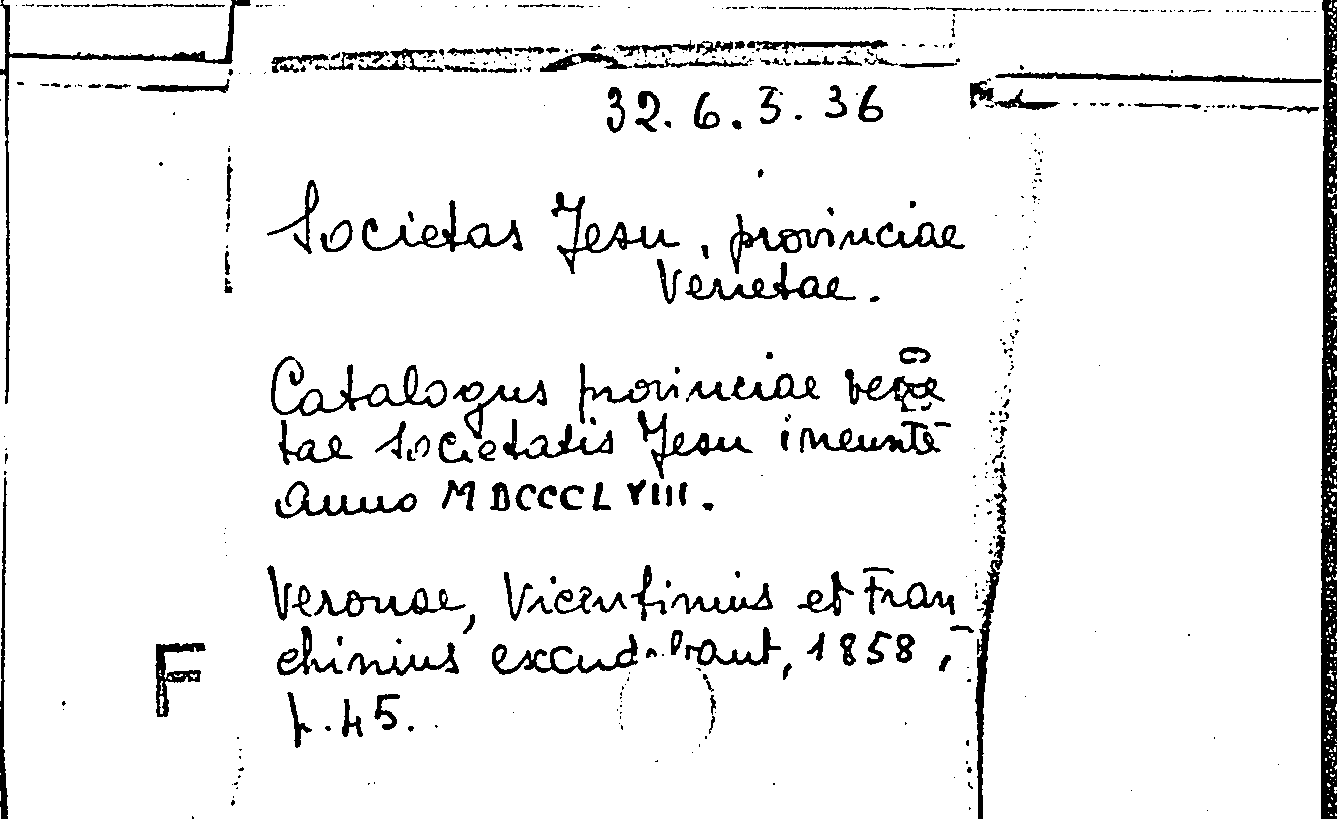 32. 6. 5. 36
Societas Jesu, provinciae
Venetae.
Catalogus provinciae vene
tae Societatis Jesu ineunte
anno MDCCCLVIII.
Veronae, Vicentinius et Fran
chinius excudebant, 1858,
p. 45.
F